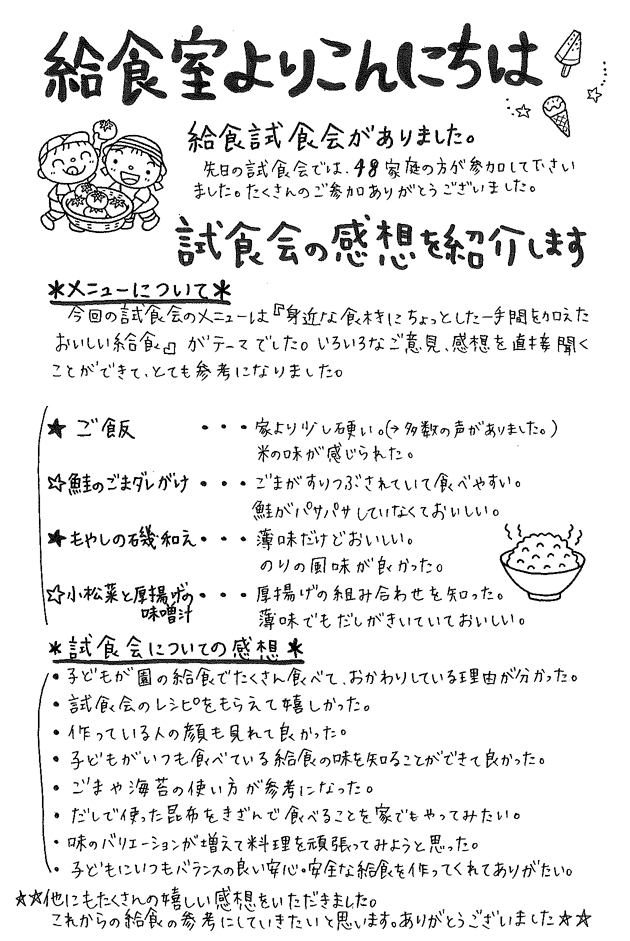 給食室よりこんにちは
給食試食会がありました。
先日の試食会では、48家庭の方が参加して下さい
ました。たくさんのご参加ありがとうございました。
試食会の感想を紹介します
＊メニューについて＊
今回の試食会のメニューは『身近な食材にちょっとした一手間を加えた
おいしい給食』がテーマでした。いろいろなご意見、感想を直接聞く
ことができて、とても参考になりました。
★ ご飯 ・・・家より少し硬い。(→多数の声がありました。)
米の味が感じられた。
☆鮭のごまダレがけ ・・・ごまがすりつぶされていて食べやすい。
鮭がパサパサしていなくておいしい。
★もやしの磯和え・・・薄味だけどおいしい。
のりの風味が良かった。
☆小松菜と厚揚げの ・・・厚揚げの組み合わせを知った。
味噌汁 薄味でもだしがきいていておいしい。
＊試食会についての感想＊
・子どもが園の給食でたくさん食べて、おかわりしている理由が分かった。
・試食会のレシピをもらえて嬉しかった。
・作っている人の顔も見れて良かった。
・子どもがいつも食べている給食の味を知ることができて良かった。
・ごまや海苔の使い方が参考になった。
・だしで使った昆布をきざんで食べることを家でもやってみたい。
・味のバリエーションが増えて料理を頑張ってみようと思った。
・子どもにいつもバランスの良い安心・安全な給食を作ってくれてありがたい。
☆☆他にもたくさんの嬉しい感想をいただきました。
これからの給食の参考にしていきたいと思います。ありがとうございました☆☆